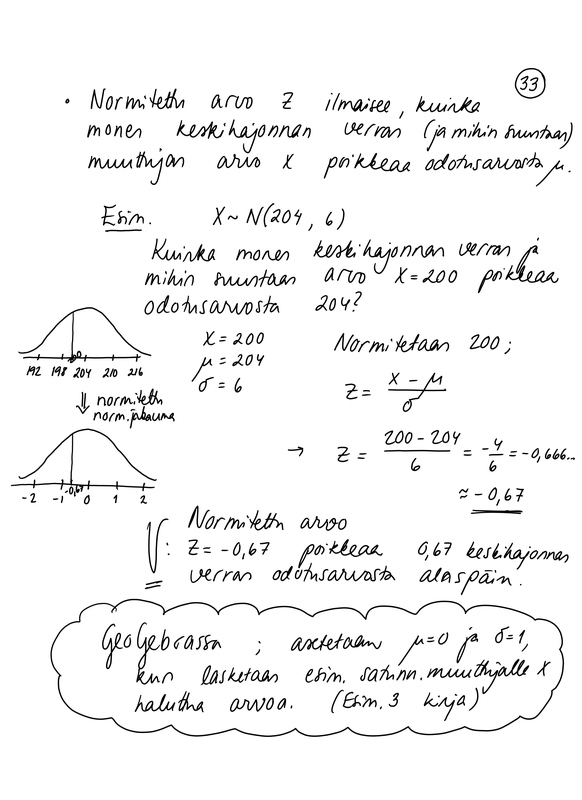 33
• Normitettu arvo Z ilmaisee, kuinka
monen keskihajonnan verran (ja mihin suuntaan)
muuttujan arvo X poikkeaa odotusarvosta μ.
Esim. X ~ N(204, 6)
Kuinka monen keskihajonnan verran ja
mihin suuntaan arvo X=200 poikkeaa
odotusarvosta 204?
X = 200
μ = 204
σ = 6
Normitetaan 200;
Z = (X - μ)/σ
192 198 204 210 216
⇓ normitettu
norm.jakauma
→ Z = (200 - 204)/6 = -4/6 = -0,666...
≈ -0,67
-2 -1 -0,67 0 1 2
V: Normitettu arvo
Z = -0,67 poikkeaa 0,67 keskihajonnan
verran odotusarvosta alaspäin.
GeoGebrassa ; asetetaan μ=0 ja σ=1,
kun lasketaan esim. satunn.muuttujalle X
haluttua arvoa. (Esim. 3 kirja)